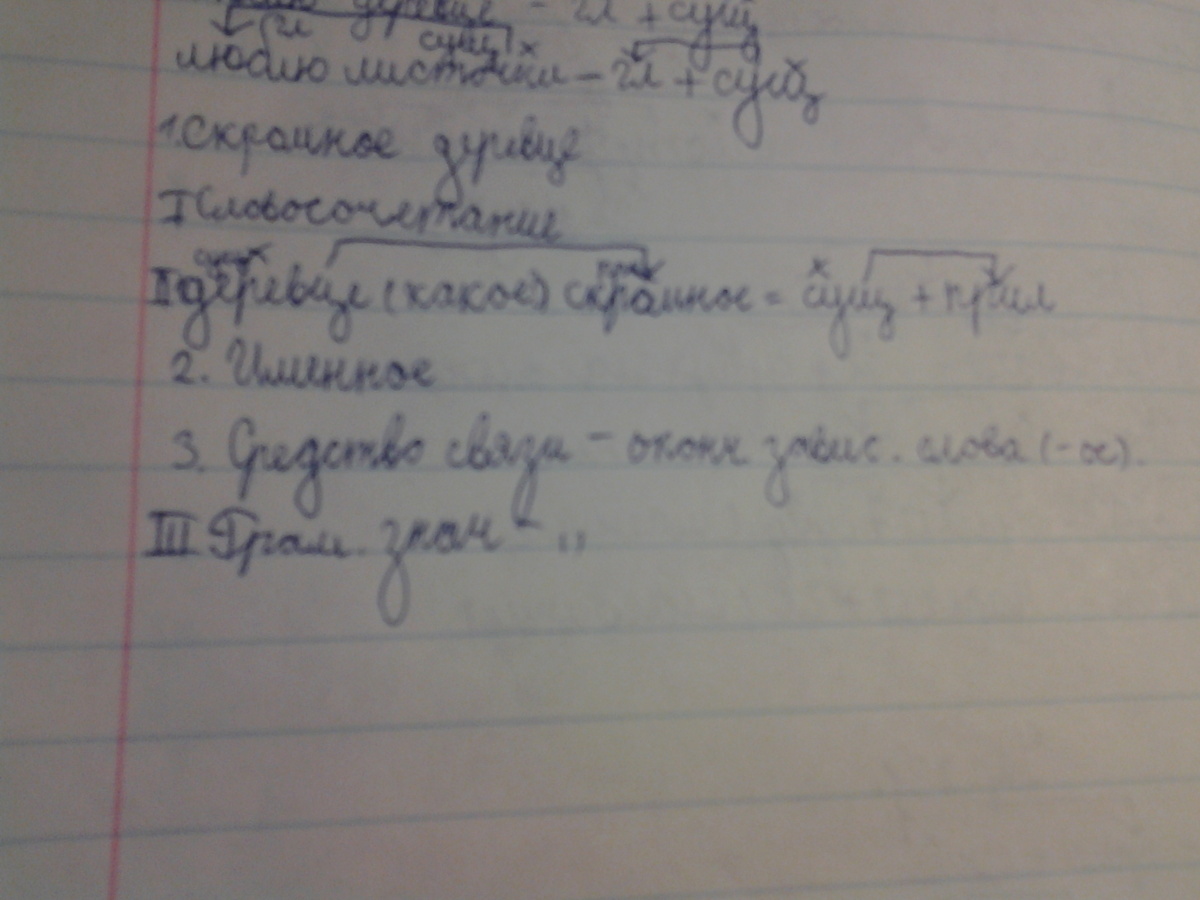 деревце - гл + сущ
гл сущ х
люблю листочки – гл + сущ
1. Скромное деревце
I Словосочетание
сущ х прил
II деревце (какое) скромное = сущ + прил
2. Именное
3. Средство связи – оконч завис. слова (-ое).
III Грам. знач – „